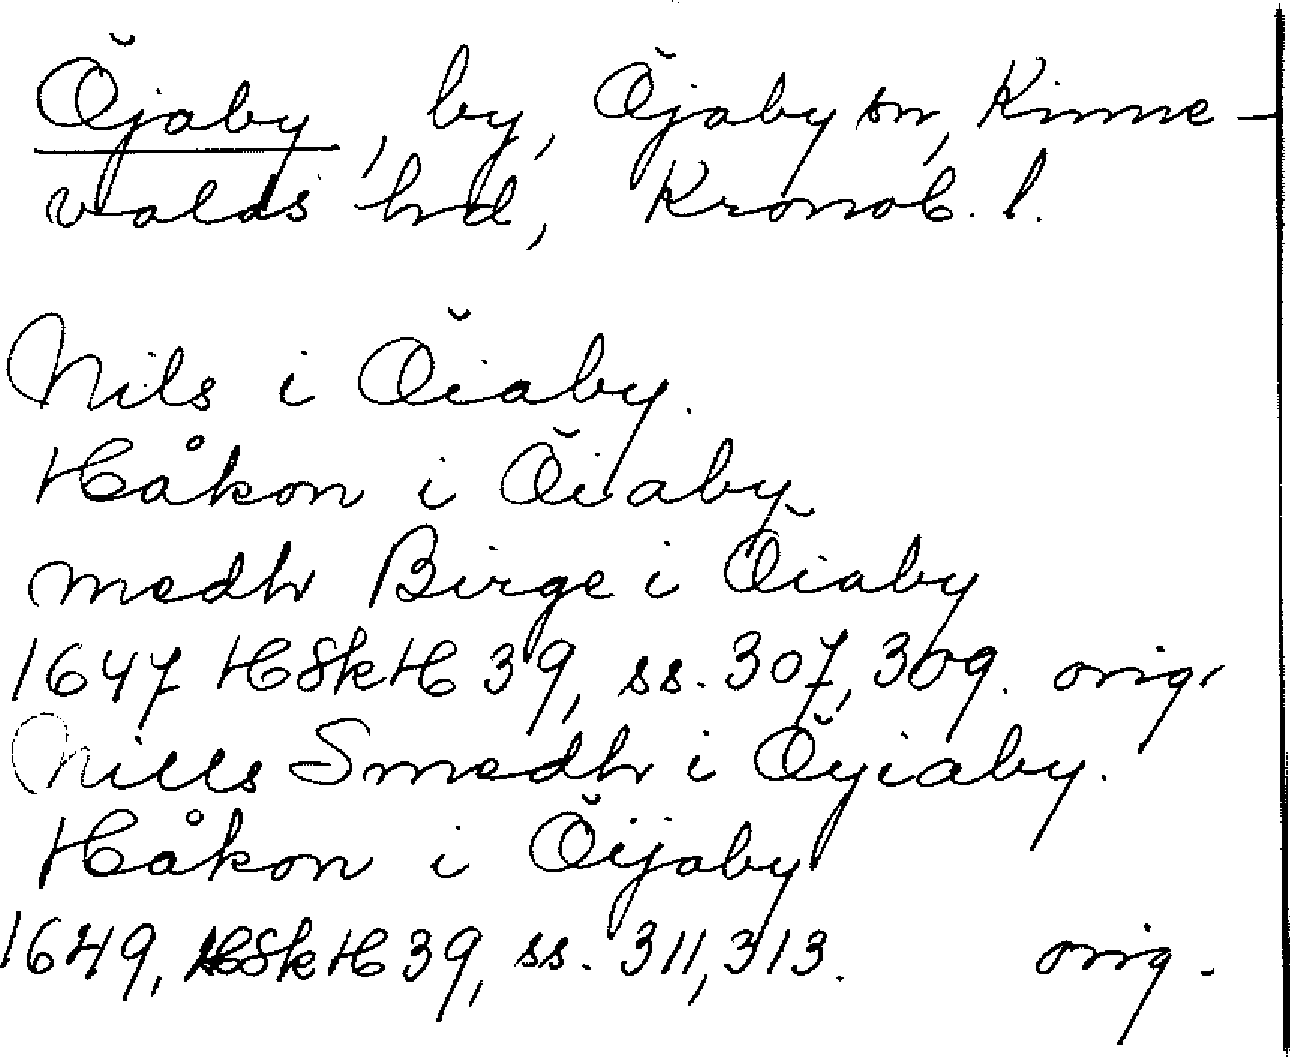 Öjaby, by, Öjaby sn, Kinne-
valds hd, Kronob. l.
Nils i Öiaby.
Håkon i Öiaby
medh Birge i Öiaby
1647 HSkH 39, ss. 307, 309. orig.
Nills Smedh i Öyiaby.
Håkon i Öijaby
1649, HSkH 39, ss. 311, 313. orig.